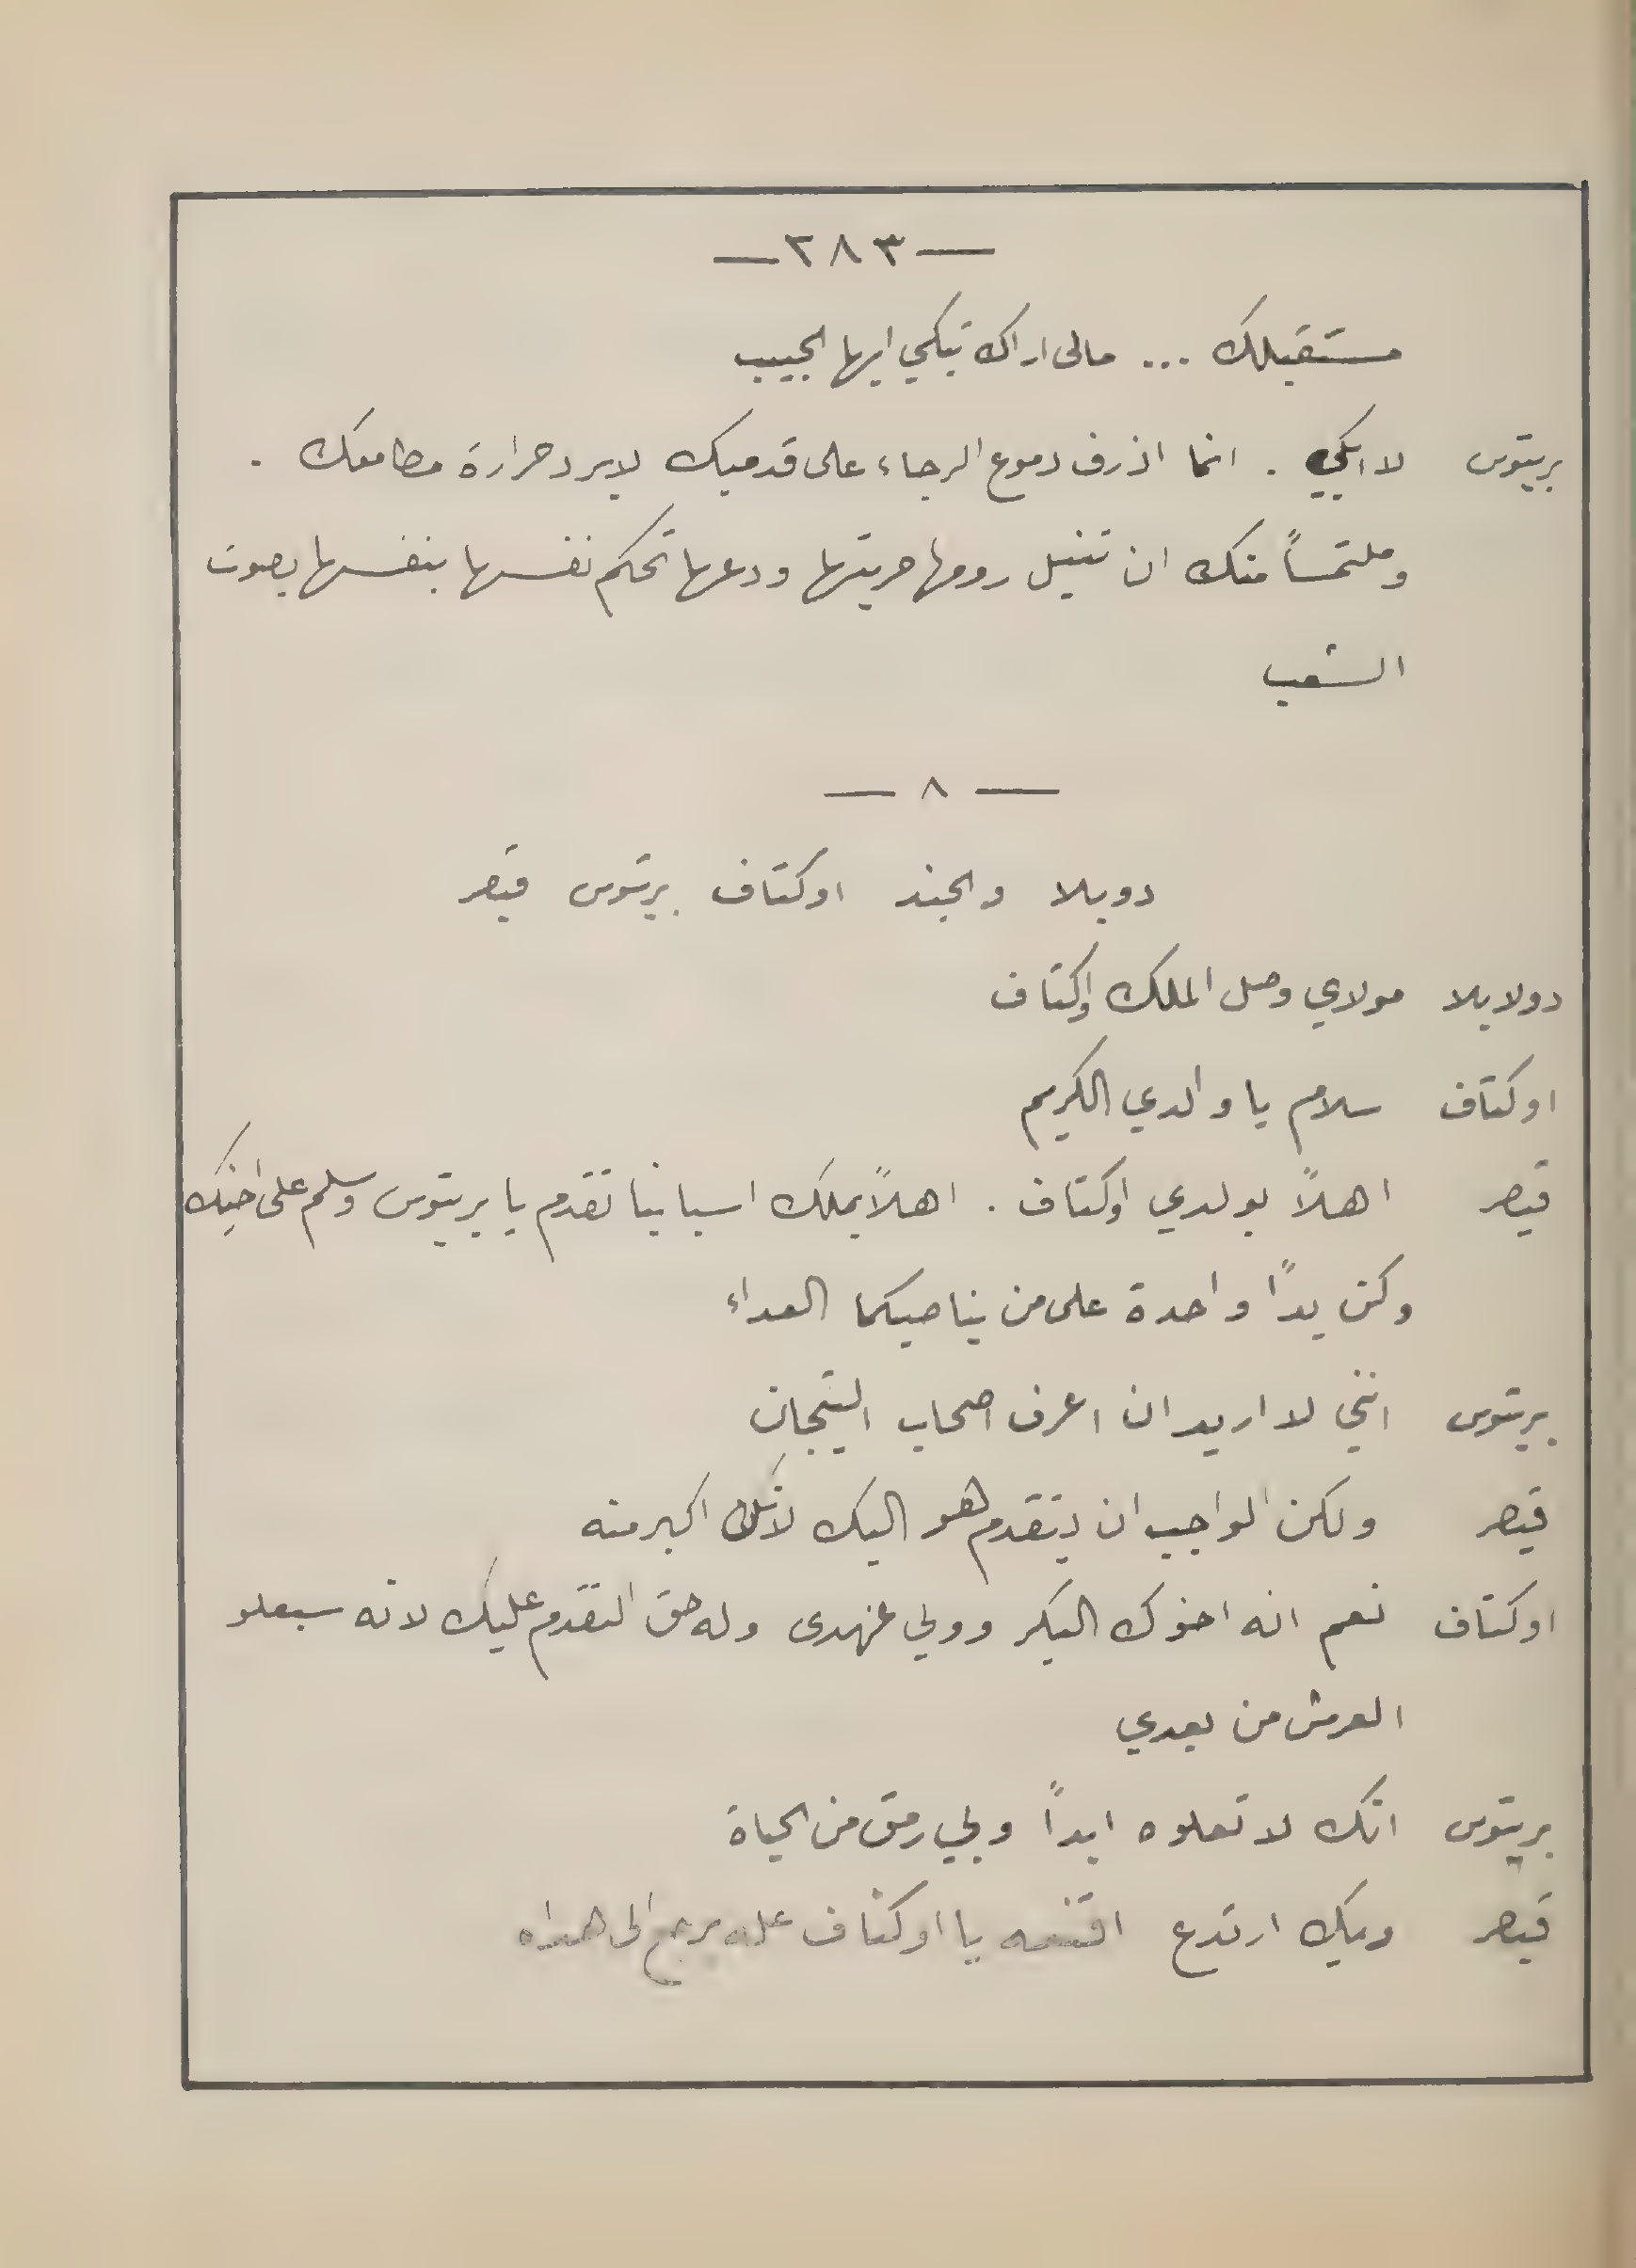 — ٢٨٣ —
مستقبلك ... مالى اراك تبكي ايها الحبيب
بريتوس لا ابكي . انما اذرف دموع الرجاء على قدميك لابرد حرارة مطامعك .
وملتمساً منك ان تنيل روما حريتها ودعها تحكم نفسها بنفسها بصوت
الشعب
— ٨ —
دوبلا والجند اوكتاف برتوس قيصر
دولابلا مولاي وصل الملك اوكتاف
اوكتاف سلام يا والدي الكريم
قيصر اهلاً بولدي اوكتاف . اهلاً بملك اسبانيا تقدم يا بريتوس وسلم على اخيك
وكن يدًا واحدة على من يناصبكما العداء
بريتوس انني لا اريد ان اعرف اصحاب التيجان
قيصر ولكن الواجب ان يتقدم هو اليك لأنك اكبر منه
اوكتاف نعم انه اخوك البكر وولي عهدى وله حق التقدم عليك لانه سيعلو
العرش من بعدي
بريتوس انك لا تعلوه ابدًا وبي رمق من الحياة
قيصر ويك ارتدع اقنعه يا اوكتاف عله يرجع الى هداه